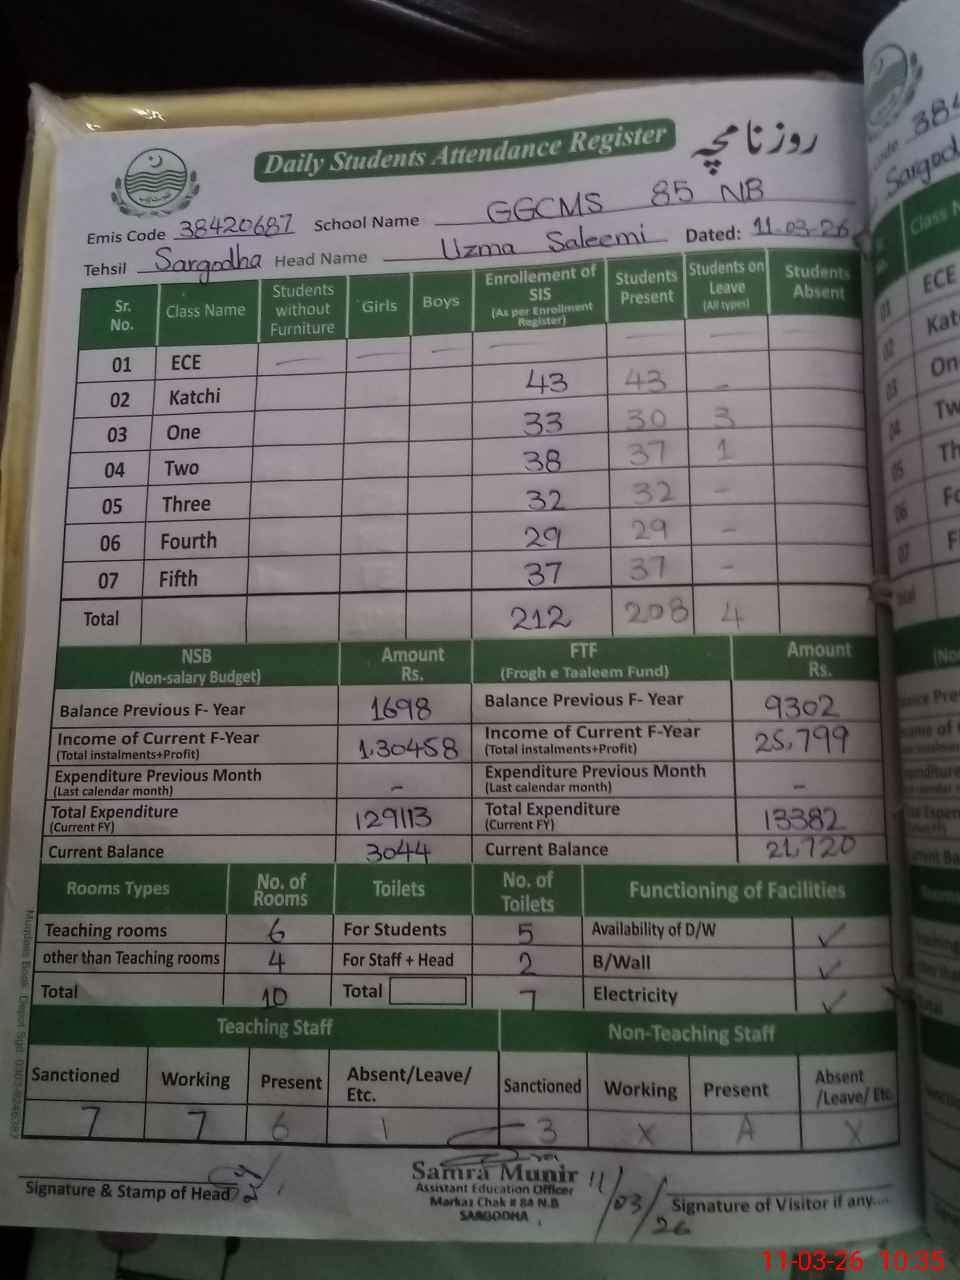 Daily Students Attendance Register روزنامچہ
Emis Code 38420687 School Name GGCMS 85 NB
Tehsil Sargodha Head Name Uzma Saleemi Dated: 11-03-26
Sr. No. Class Name Students without Furniture Girls Boys Enrollement of SIS (As per Enrollment Register) Students Present Students on Leave (All types) Students Absent
01 ECE — — — — — — —
02 Katchi 43 43 -
03 One 33 30 3
04 Two 38 37 1
05 Three 32 32 -
06 Fourth 29 29 -
07 Fifth 37 37 -
Total 212 208 4
NSB (Non-salary Budget) Amount Rs. FTF (Frogh e Taaleem Fund) Amount Rs.
Balance Previous F- Year 1698 Balance Previous F- Year 9302
Income of Current F-Year (Total instalments+Profit) 1,30458 Income of Current F-Year (Total instalments+Profit) 25,799
Expenditure Previous Month (Last calendar month) - Expenditure Previous Month (Last calendar month) -
Total Expenditure (Current FY) 129113 Total Expenditure (Current FY) 13382
Current Balance 3044 Current Balance 21,720
Rooms Types No. of Rooms Toilets No. of Toilets Functioning of Facilities
Teaching rooms 6 For Students 5 Availability of D/W ✓
other than Teaching rooms 4 For Staff + Head 2 B/Wall ✓
Total 10 Total 7 Electricity ✓
Teaching Staff Non-Teaching Staff
Sanctioned Working Present Absent/Leave/ Etc. Sanctioned Working Present Absent /Leave/ Etc.
7 7 6 1 3 X A X
Signature & Stamp of Head
Samra Munir
Assistant Education Officer
Markaz Chak # 84 N.B
SARGODHA
11/03/26
Signature of Visitor if any....
11-03-26 10:35